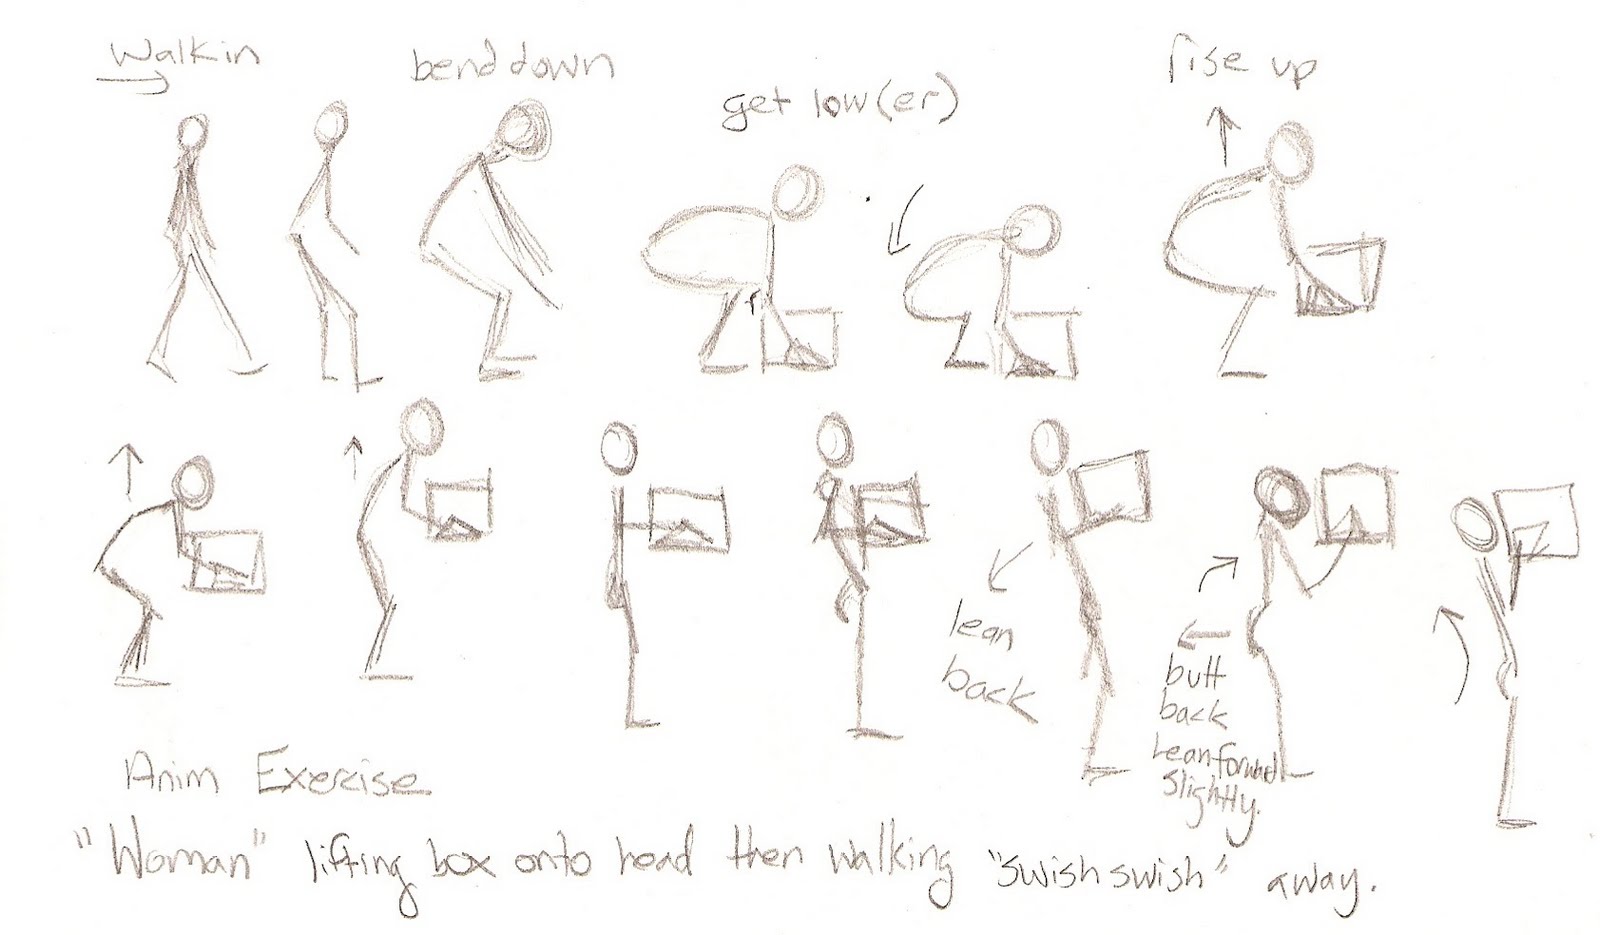 Walk in
bend down
get low(er)
rise up
lean
back
butt
back
Lean forward
slightly.
Anim Exercise
"Woman" lifting box onto head then walking "swish swish" away.